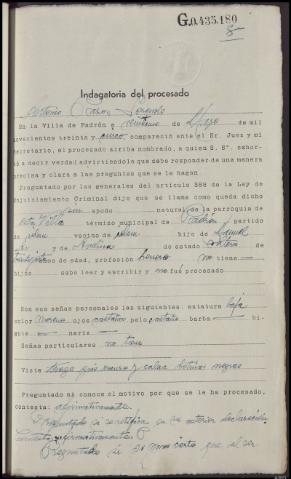 G.0,435,180
8
Indagatoria del procesado
Antonio
En la Villa de Padrón a de Mayo de mil
novecientos treinta y cinco compareció ante el Sr. Juez y mi
Secretario, el procesado arriba nombrado, a quien S. Sª. exhor-
tó a decir verdad advirtiéndole que debe responder de una manera
precisa y clara a las preguntas que se le hagan.
Preguntado por las generales del artículo 388 de la Ley de
Enjuiciamiento Criminal dijo que se llama como queda dicho
apodo natural de la parroquia de
esta Villa término municipal de Padrón partido
de idem vecino de idem hijo de Manuel
y de de estado soltero de
años de edad, profesión herrero no tiene
hijos sabe leer y escribir y no fué procesado
Son sus señas personales las siguientes: estatura baja
color moreno ojos castaños pelo castaño barba — bi-
gote — nariz —
Señas particulares no tiene
Viste traje gris oscuro y calza botas negras
Preguntado si conoce el motivo por que se le ha procesado,
contesta: afirmativamente.
Preguntado si se ratifica en su anterior declaración,
contesta afirmativamente
Preguntado si es cierto que al ser